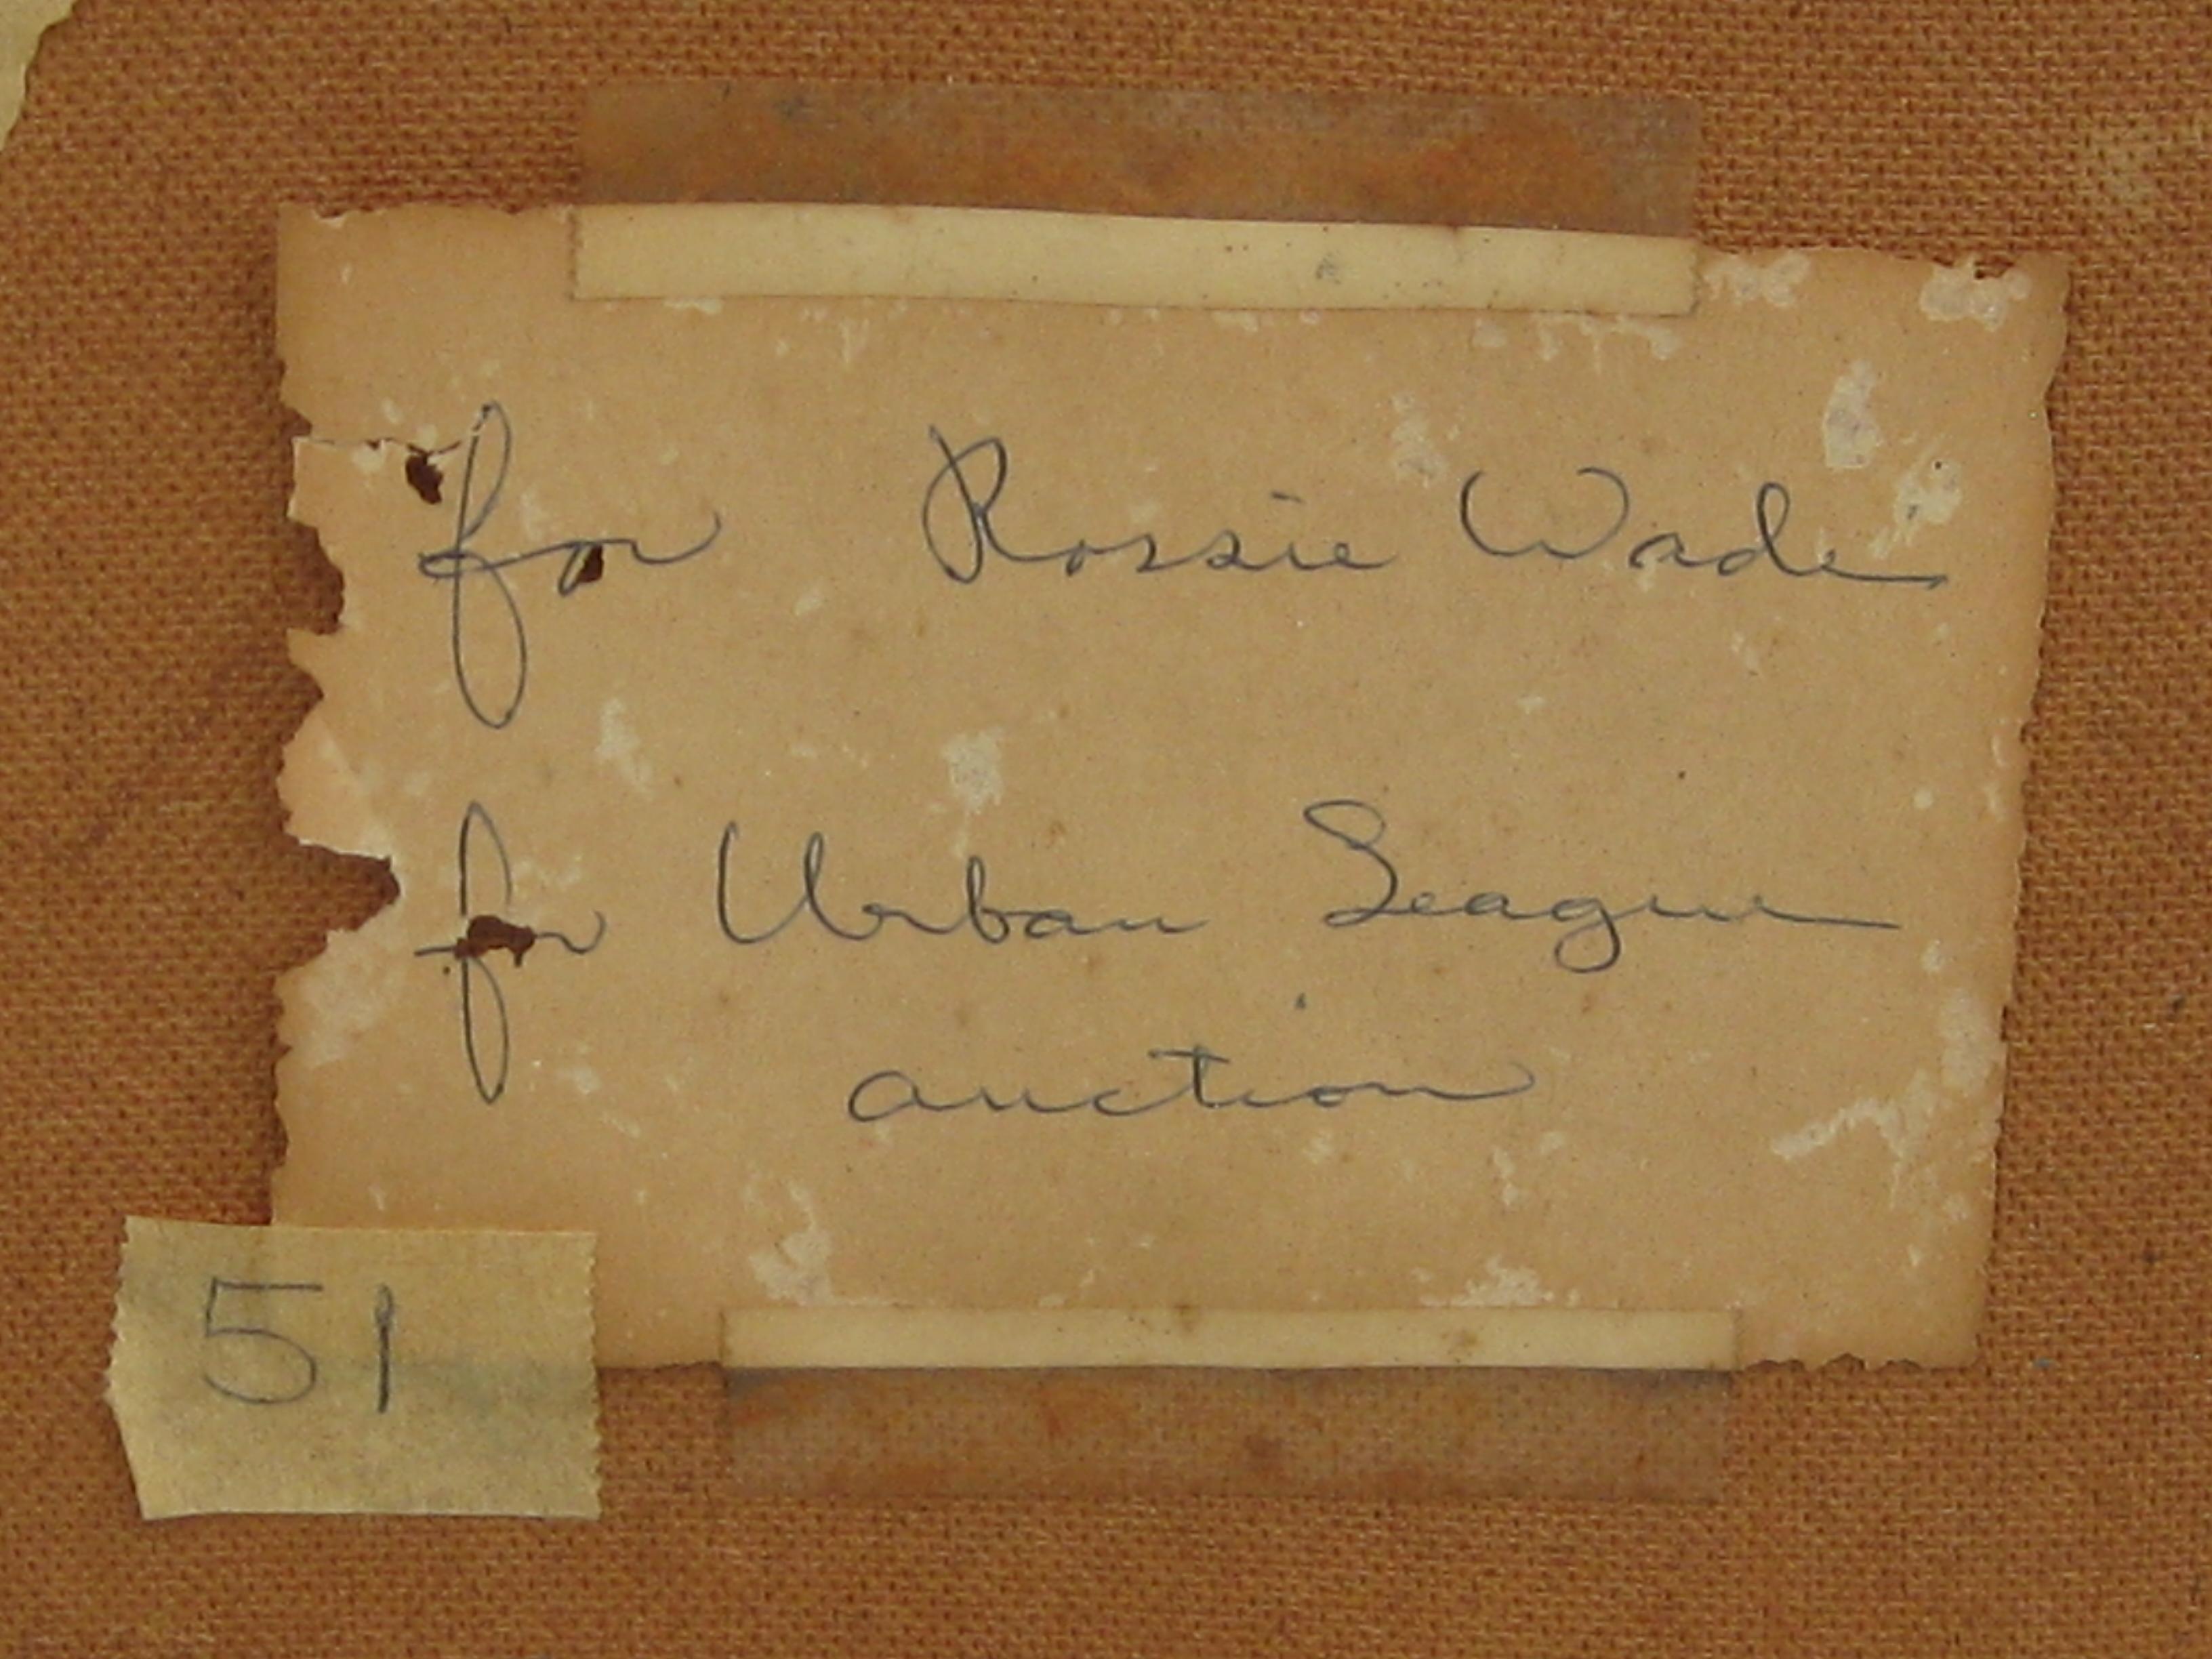 for Rossie Wade
for Urban League
auction
51